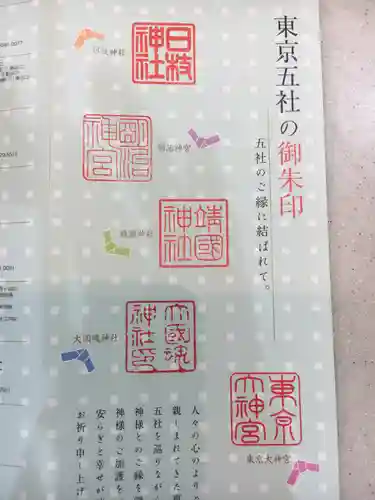 東京五社の御朱印
五社のご縁に結ばれて。
日枝神社
日枝神社
明治神宮
明治神宮
靖國神社
靖國神社
大國魂神社印
大國魂神社
東京大神宮
東京大神宮
人々の心のより
親しまれてきた
五社を巡りなが
神様とのご縁を
神様のご加護を
安らぎと幸せが
お祈り申し上げ